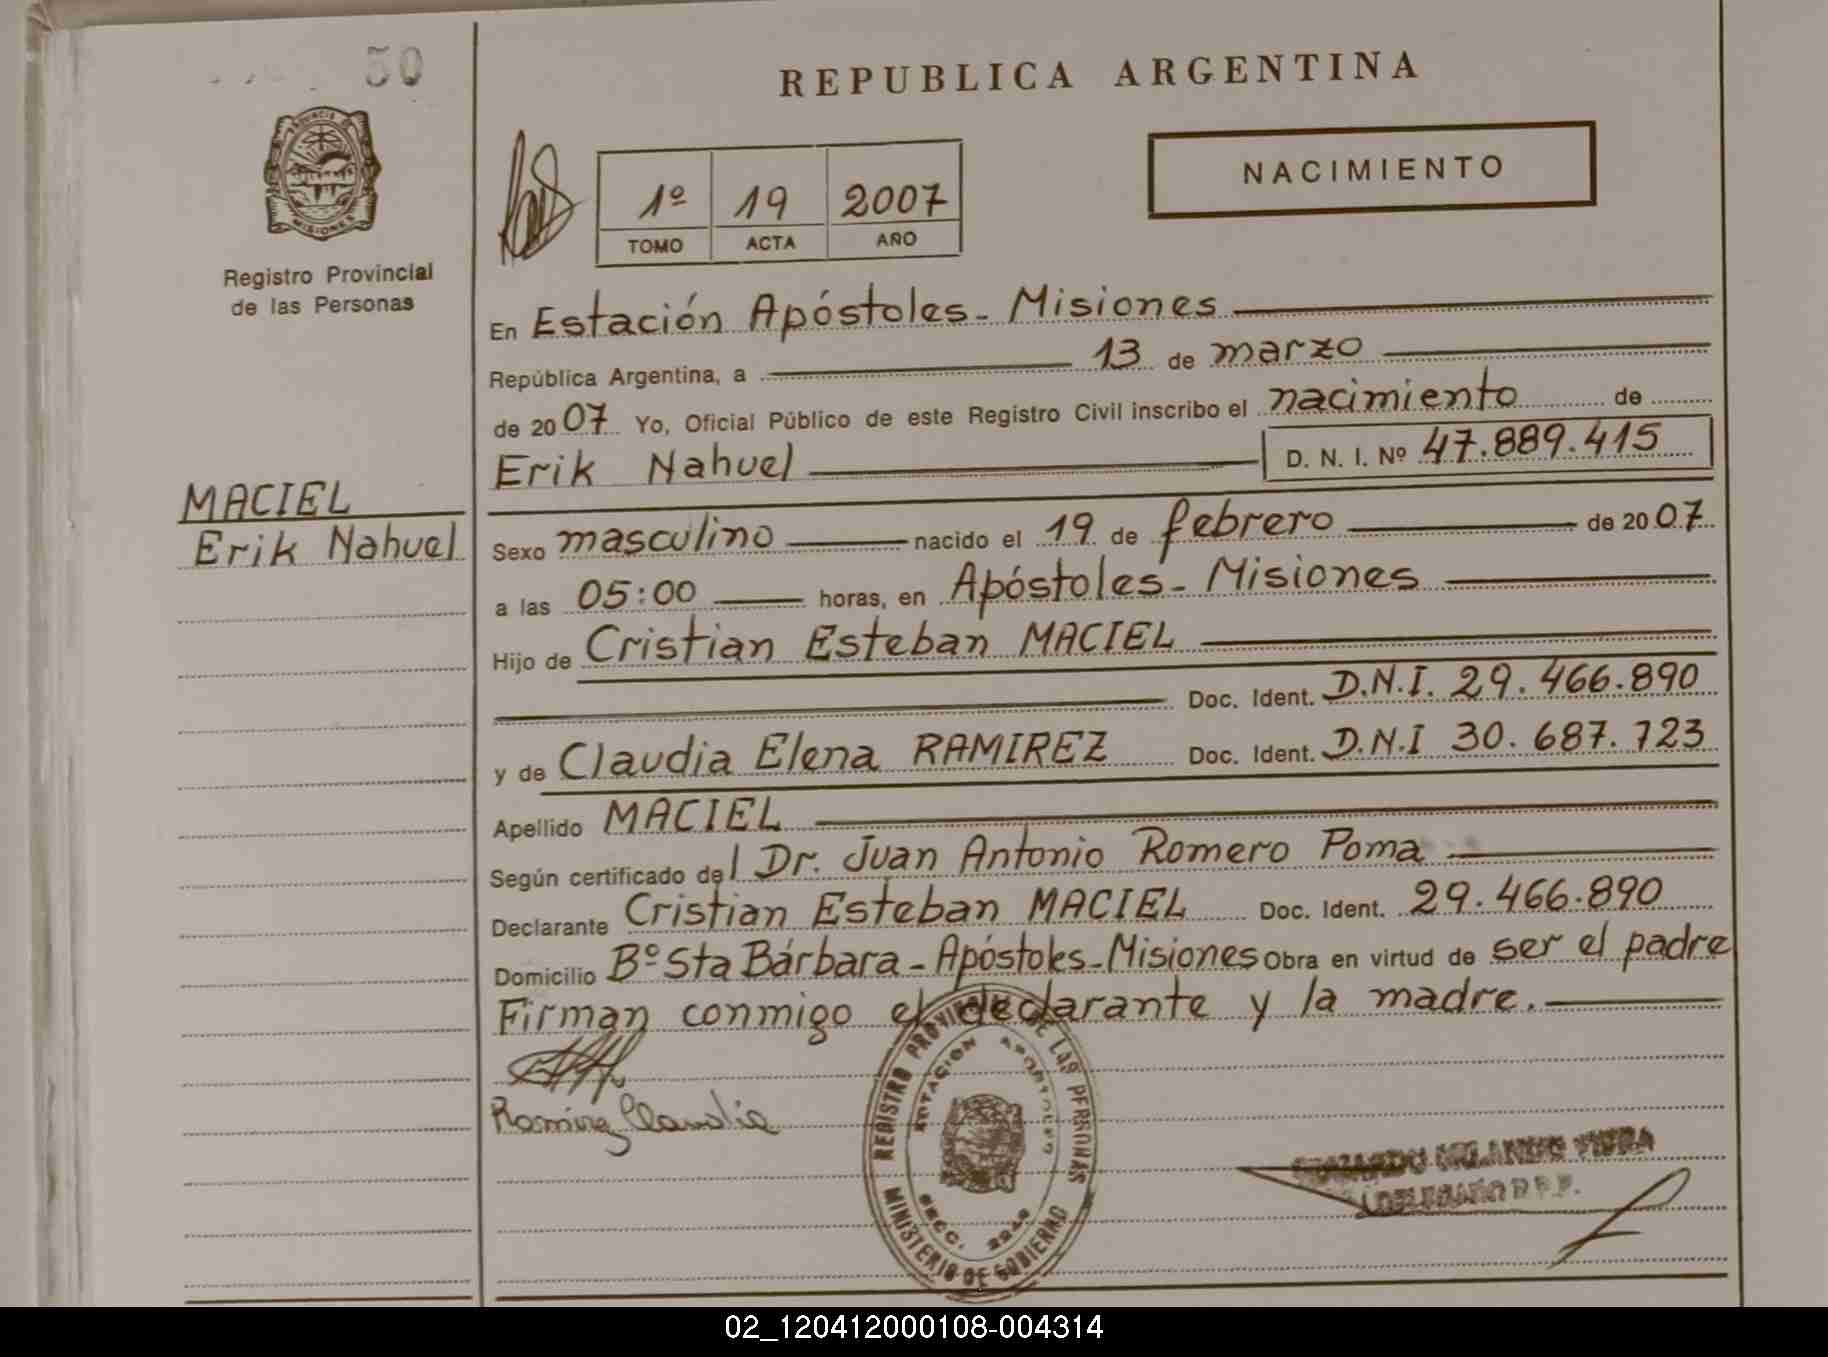 50
REPUBLICA ARGENTINA
NACIMIENTO
1º 19 2007
TOMO ACTA AÑO
MISIONES
Registro Provincial
de las Personas
En Estación Apóstoles - Misiones
República Argentina, a 13 de marzo
de 2007 Yo, Oficial Público de este Registro Civil inscribo el nacimiento de
Erik Nahuel D. N. I. Nº 47.889.415
MACIEL
Erik Nahuel
Sexo masculino nacido el 19 de febrero de 2007
a las 05:00 horas, en Apóstoles - Misiones
Hijo de Cristian Esteban MACIEL
Doc. Ident. D.N.I. 29.466.890
y de Claudia Elena RAMIREZ Doc. Ident. D.N.I 30.687.723
Apellido MACIEL
Según certificado del Dr. Juan Antonio Romero Poma
Declarante Cristian Esteban MACIEL Doc. Ident. 29.466.890
Domicilio Bº Sta Bárbara - Apóstoles - Misiones Obra en virtud de ser el padre
Firman conmigo el declarante y la madre.
Ramirez Claudia
REGISTRO PROVINCIAL DE LAS PERSONAS
ESTACION APOSTOLES
SECC.
MINISTERIO DE GOBIERNO
ORLANDO VIERA
DELEGADO R.P.P.
02_120412000108-004314